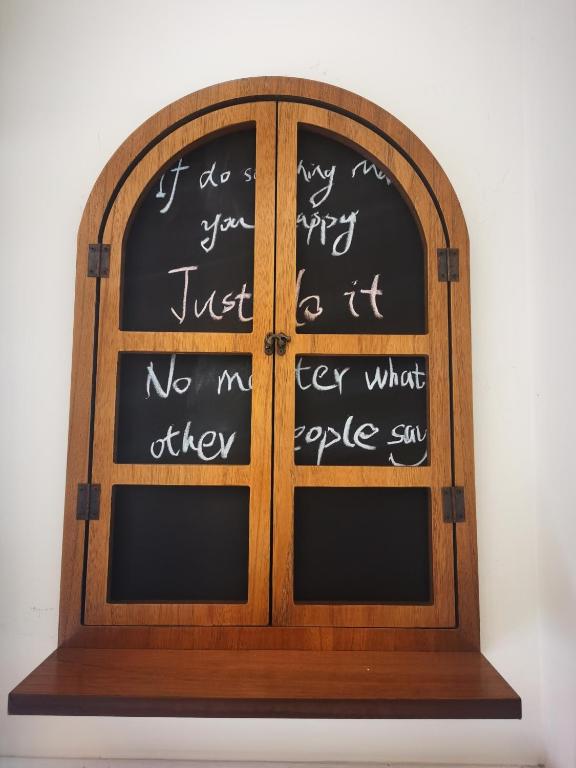 If do something make
you happy
Just do it
No matter what
other people say